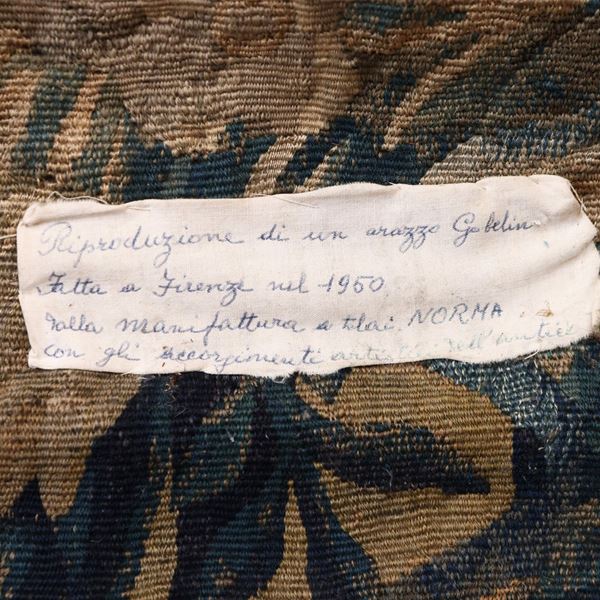 Riproduzione di un arazzo Gobelin
Fatta a Firenze nel 1950
dalla manifattura a telai NORMA
con gli accorgimenti artistici dell'antico